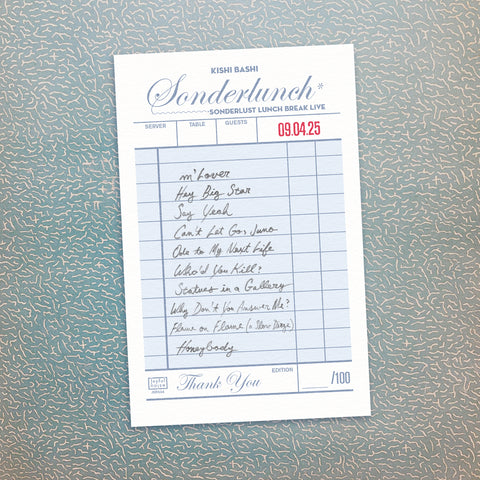 KISHI BASHI
Sonderlunch*
SONDERLUST LUNCH BREAK LIVE
SERVER TABLE GUESTS 09.04.25
m'Lover
Hey Big Star
Say Yeah
Can't Let Go, Juno
Ode to My Next Life
Who'd You Kill?
Statues in a Gallery
Why Don't You Answer Me?
Flame on Flame (a Slow Dirge)
Honeybody
Thank You EDITION /100